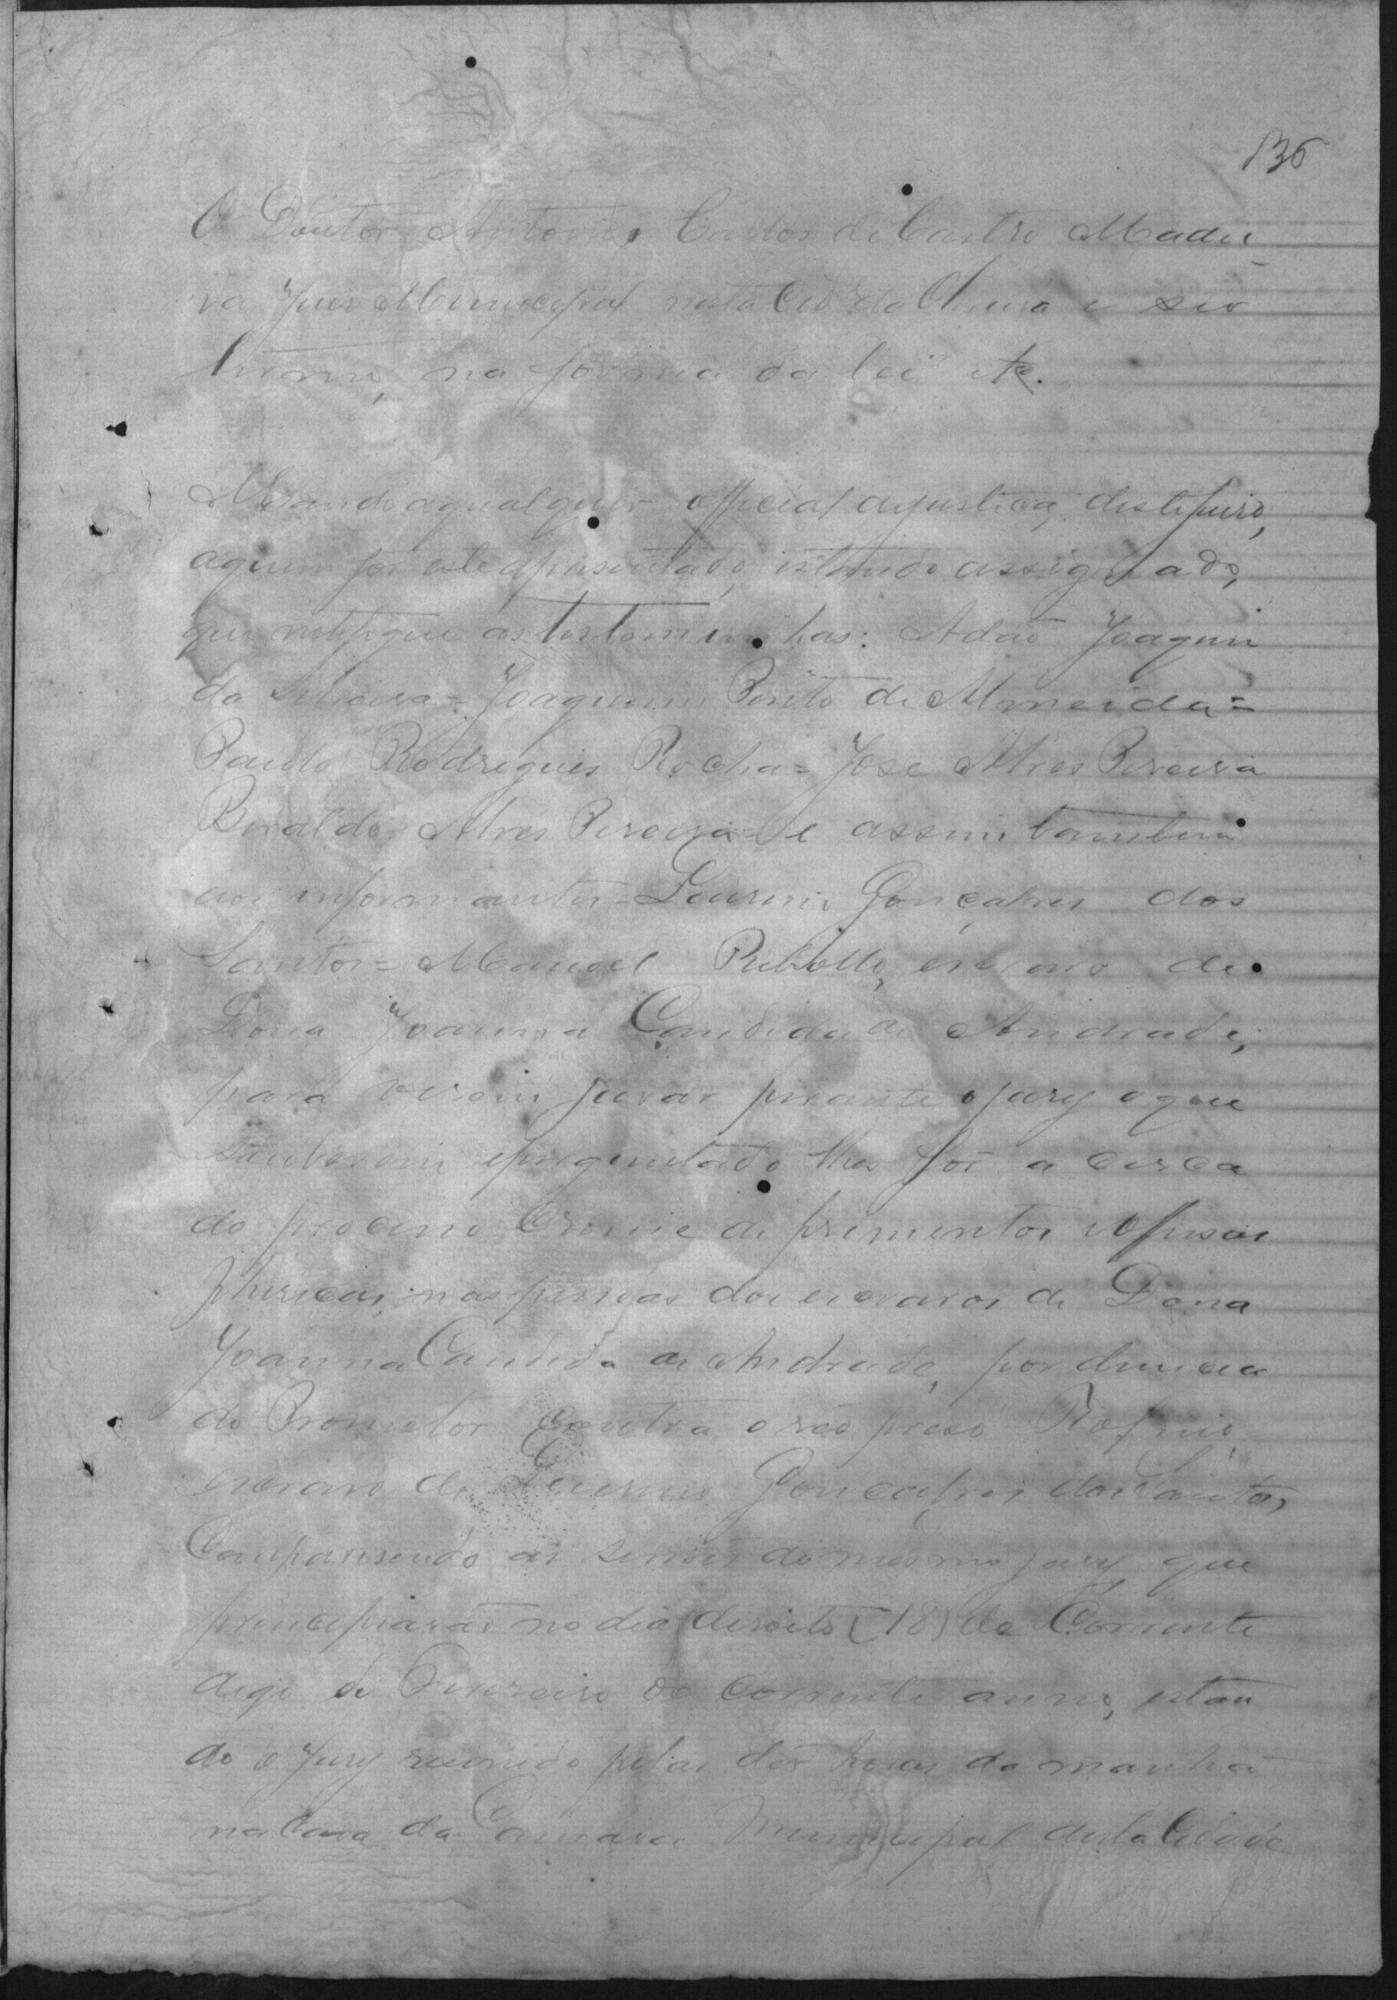 136
O Doutor Antonio Carlos de Castro Madei
ra Juiz Municipal nesta Cid.e de e seo
termo, na forma da lei etc.
Mando a qualquer official de justiça, deste juiso,
a quem for este apresentado, estando assignado,
que notifique as testeminhas: Adão Joaquim
da Silveira = Joaquim Pinto de Almeida =
Paulo Rodrigues Rocha = Jose Alves Pereira
Alves Pereira = e assim tambem
aos informantes = Gonçalves dos
Santos = Manoel Rebollo, escravo de
Dona Joanna Candida de Andrade,
para virem jurar perante o jury o que
souberem e perguntado lhes for a cerca
do processo crime de ferimentos e offensas
phisicas, nas pessoas dos escravos de Dona
Joanna Candida de Andrade, por denuncia
do Promotor contra o réo preso Rofino,
escravo de Gonçalves dos Santos,
Comparecendo as sessões do mesmo jury, que
principiarão no dia desoito (18) de Corrente
digo de Fevereiro do corrente anno, estan
do o Jury reunido pelas dés horas da manhã
na Casa da Camara Municipal desta Cidade